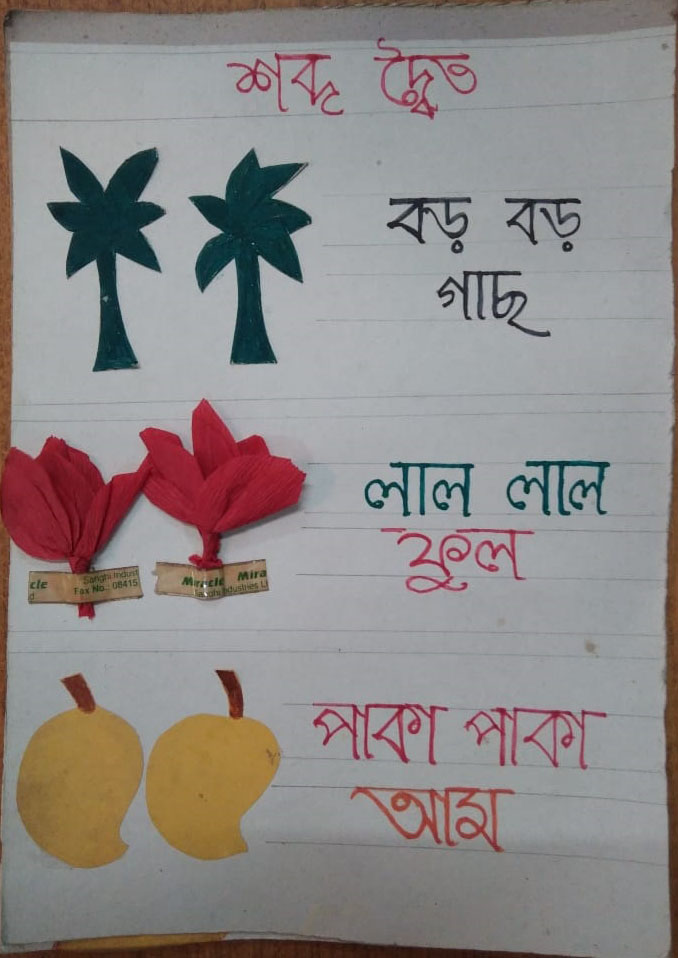 শব্দ দ্বৈত
বড় বড়
গাছ
লাল লাল
ফুল
cle Sanghi Indust
d Fax No.: 08415
Miracle Mira
Sanghi Industries Li
পাকা পাকা
আম